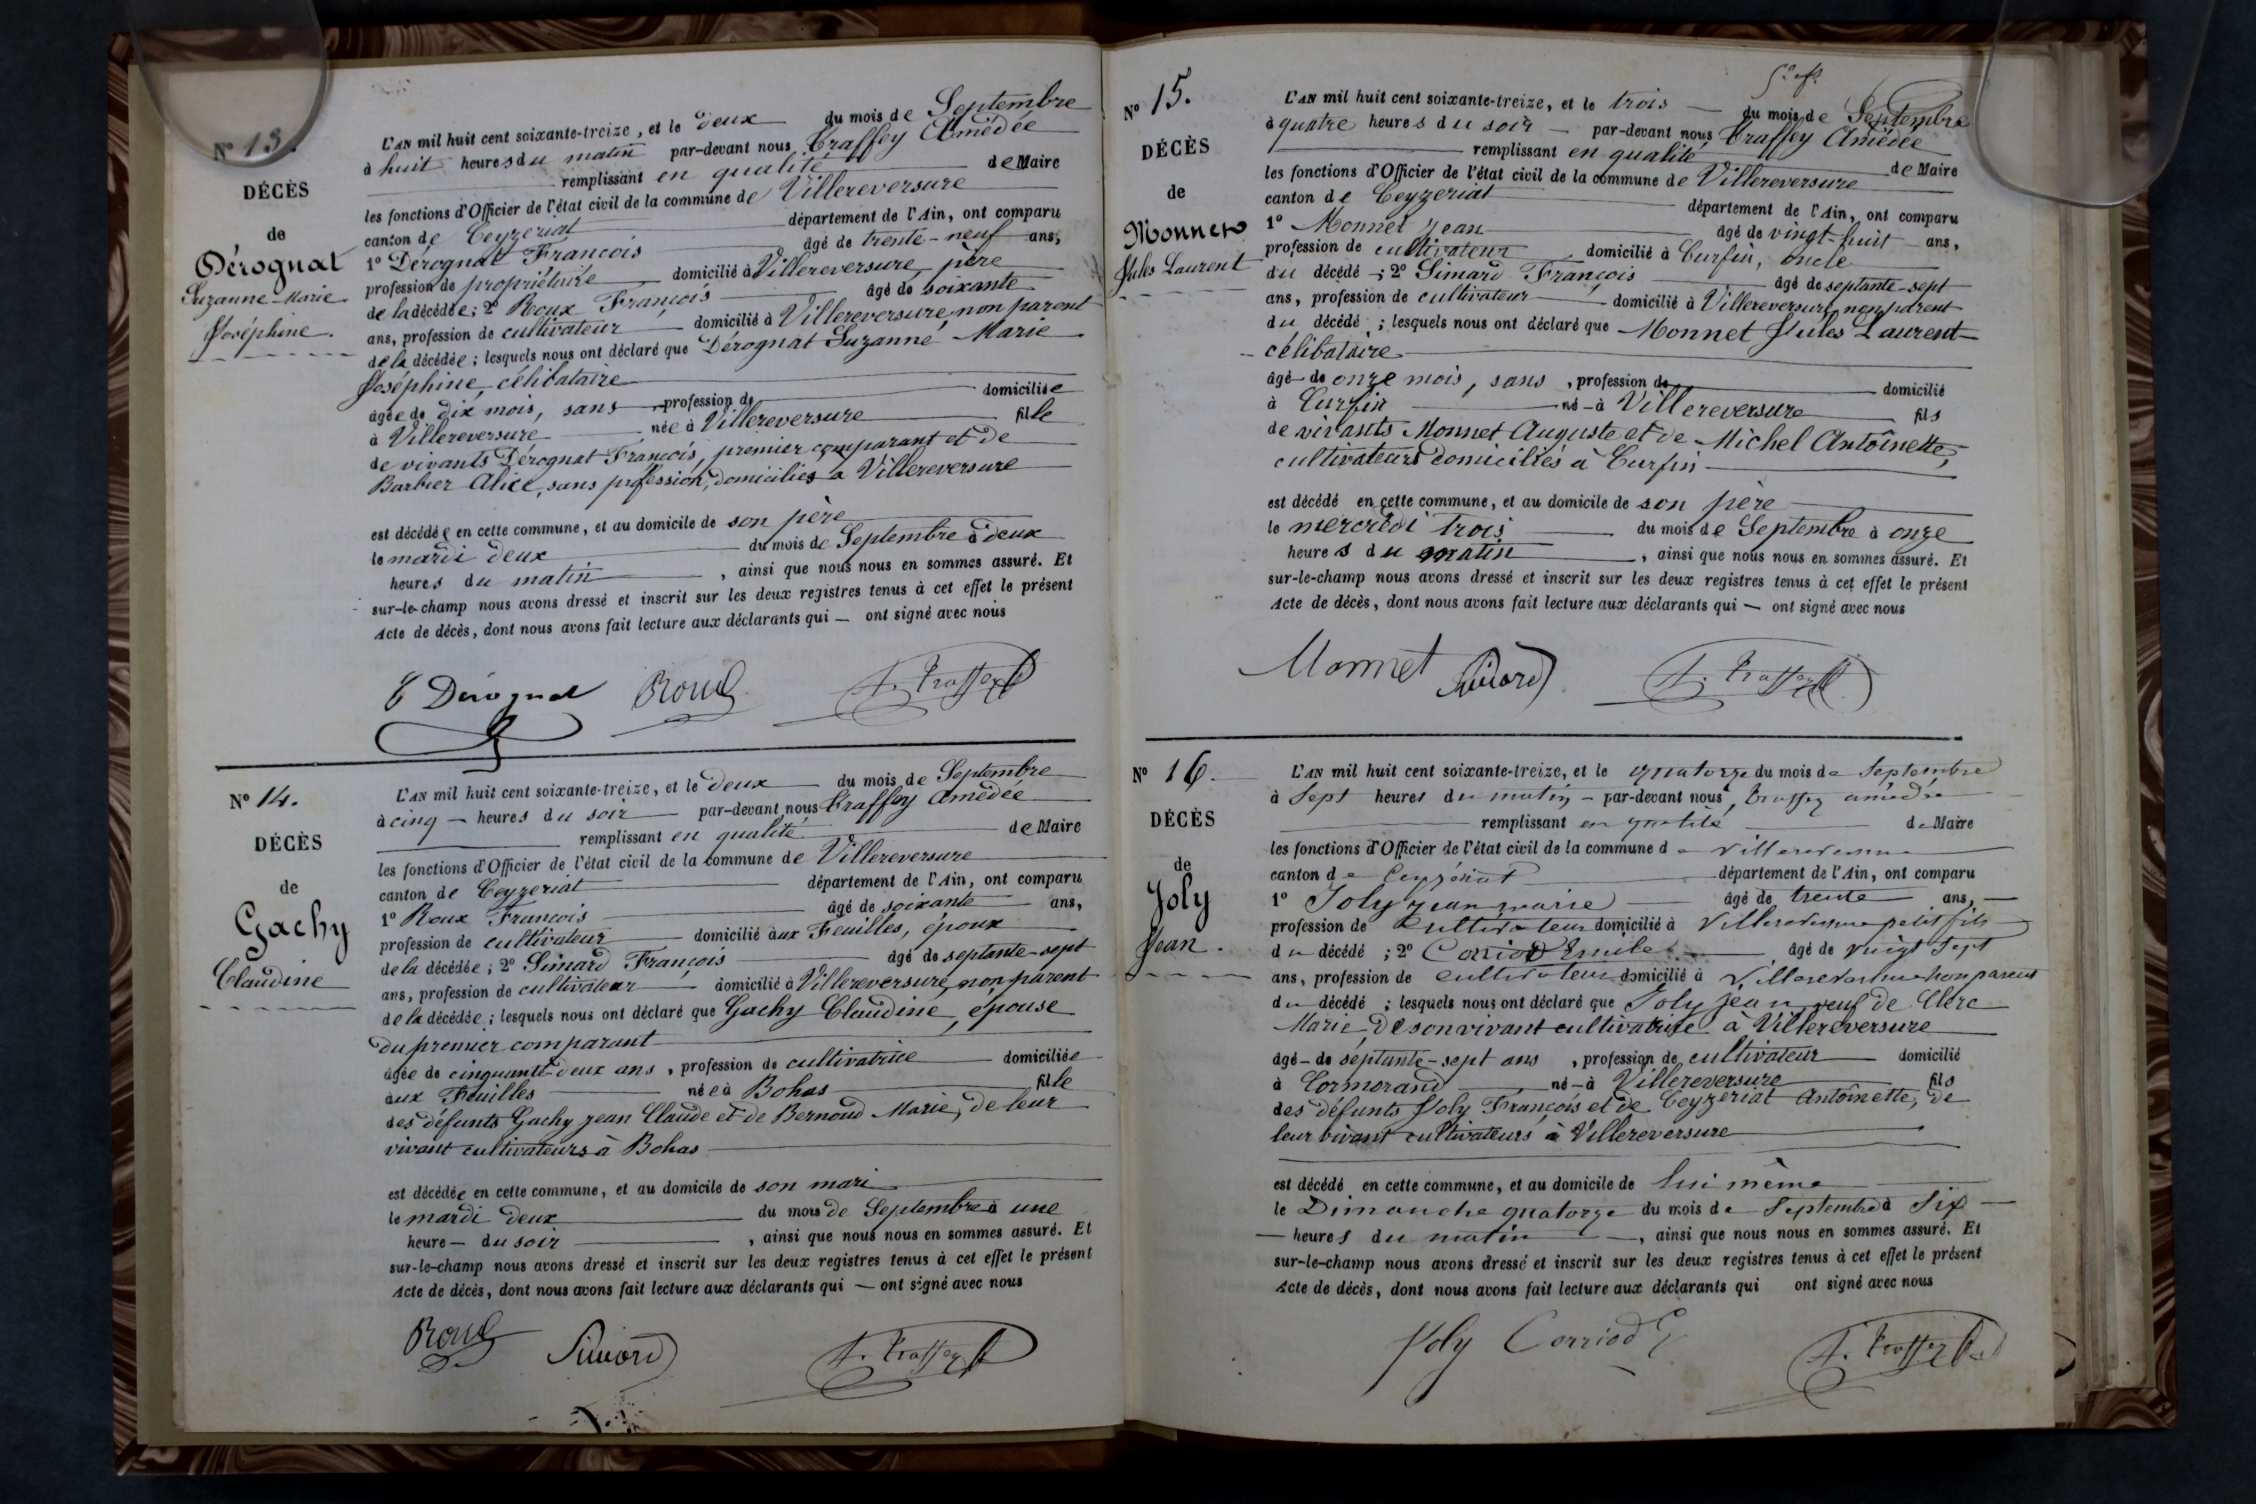 Nº 13.
DÉCÈS
de
Dérognat
Suzanne-Marie
Joséphine.
L'AN mil huit cent soixante-treize, et le deux du mois de Septembre
à huit heures du matin par-devant nous Traffey Amédée
remplissant en qualité de Maire
les fonctions d'Officier de l'état civil de la commune de Villereversure
canton de Ceyzeriat département de l'Ain, ont comparu
1º Dérognat François âgé de trente-neuf ans,
profession de propriétaire domicilié à Villereversure, père
de la décédée; 2º Roux François âgé de soixante
ans, profession de cultivateur domicilié à Villereversure, non parent
de la décédée; lesquels nous ont déclaré que Dérognat Suzanne Marie
Joséphine, célibataire
âgée de dix mois, sans profession de domiciliée
à Villereversure née à Villereversure fille
de vivants Dérognat François, premier comparant et de
Barbier Alice, sans profession, domiciliés à Villereversure
est décédée en cette commune, et au domicile de son père
le mardi deux du mois de Septembre à deux
heures du matin, ainsi que nous nous en sommes assuré. Et
sur-le-champ nous avons dressé et inscrit sur les deux registres tenus à cet effet le présent
Acte de décès, dont nous avons fait lecture aux déclarants qui — ont signé avec nous
Dérognat Roux A. Traffey
Nº 14.
DÉCÈS
de
Gachy
Claudine
L'AN mil huit cent soixante-treize, et le deux du mois de Septembre
à cinq — heures du soir par-devant nous Traffey Amédée
remplissant en qualité de Maire
les fonctions d'Officier de l'état civil de la commune de Villereversure
canton de Ceyzeriat département de l'Ain, ont comparu
1º Roux François âgé de soixante ans,
profession de cultivateur domicilié aux Feuilles, époux
de la décédée; 2º Simard François âgé de septante-sept
ans, profession de cultivateur domicilié à Villereversure, non parent
de la décédée; lesquels nous ont déclaré que Gachy Claudine, épouse
du premier comparant
âgée de cinquante-deux ans, profession de cultivatrice domiciliée
aux Feuilles née à Bohas fille
des défunts Gachy Jean Claude et de Bernoud Marie, de leur
vivant cultivateurs à Bohas
est décédée en cette commune, et au domicile de son mari
le mardi deux du mois de Septembre à une
heure — du soir, ainsi que nous nous en sommes assuré. Et
sur-le-champ nous avons dressé et inscrit sur les deux registres tenus à cet effet le présent
Acte de décès, dont nous avons fait lecture aux déclarants qui — ont signé avec nous
Roux Simard A. Traffey
Nº 15.
DÉCÈS
de
Monnet
Jules Laurent
L'AN mil huit cent soixante-treize, et le trois — du mois de Septembre
à quatre heures du soir — par-devant nous Traffey Amédée
remplissant en qualité de Maire
les fonctions d'Officier de l'état civil de la commune de Villereversure
canton de Ceyzeriat département de l'Ain, ont comparu
1º Monnet Jean âgé de vingt-huit ans,
profession de cultivateur, domicilié à Curfin, oncle
du décédé; 2º Simard François âgé de septante-sept
ans, profession de cultivateur domicilié à Villereversure, non parent
du décédé; lesquels nous ont déclaré que Monnet Jules Laurent
célibataire
âgé de onze mois, sans, profession de domicilié
à Curfin né à Villereversure fils
de vivants Monnet Auguste et de Michel Antoînette,
cultivateurs domiciliés à Curfin
est décédé en cette commune, et au domicile de son père
le mercredi trois du mois de Septembre à onze
heures du matin, ainsi que nous nous en sommes assuré. Et
sur-le-champ nous avons dressé et inscrit sur les deux registres tenus à cet effet le présent
Acte de décès, dont nous avons fait lecture aux déclarants qui — ont signé avec nous
Monnet Simard A. Traffey
Nº 16.
DÉCÈS
de
Joly
Jean.
L'AN mil huit cent soixante-treize, et le quatorze du mois de Septembre
à Sept heures du matin — par-devant nous, Traffey Amédée
remplissant en qualité de Maire
les fonctions d'Officier de l'état civil de la commune de Villereversure
canton de Ceyzériat département de l'Ain, ont comparu
1º Joly Jean marie âgé de trente ans,
profession de Cultivateur domicilié à Villereversure petit fils
du décédé; 2º Corriod Emile âgé de vingt Sept
ans, profession de Cultivateur domicilié à Villereversure non parent
du décédé; lesquels nous ont déclaré que Joly Jean, veuf de Clerc
Marie, de son vivant cultivatrice à Villereversure
âgé de septante-sept ans, profession de cultivateur domicilié
à Cormorand né à Villereversure fils
des défunts Joly François et de Ceyzeriat Antoînette, de
leur vivant cultivateurs à Villereversure
est décédé en cette commune, et au domicile de lui même
le Dimanche quatorze du mois de Septembre à Six
heures du matin, ainsi que nous nous en sommes assuré. Et
sur-le-champ nous avons dressé et inscrit sur les deux registres tenus à cet effet le présent
Acte de décès, dont nous avons fait lecture aux déclarants qui ont signé avec nous
Joly Corriod E A. Traffey